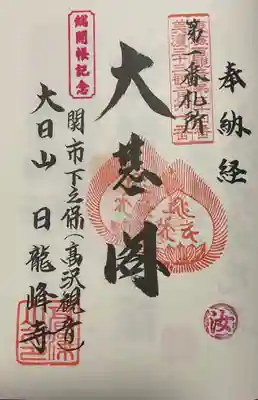 奉納経
第一番札所
大慈閣
関市下之保(高沢観音)
大日山 日龍峰寺
御開帳記念
汝